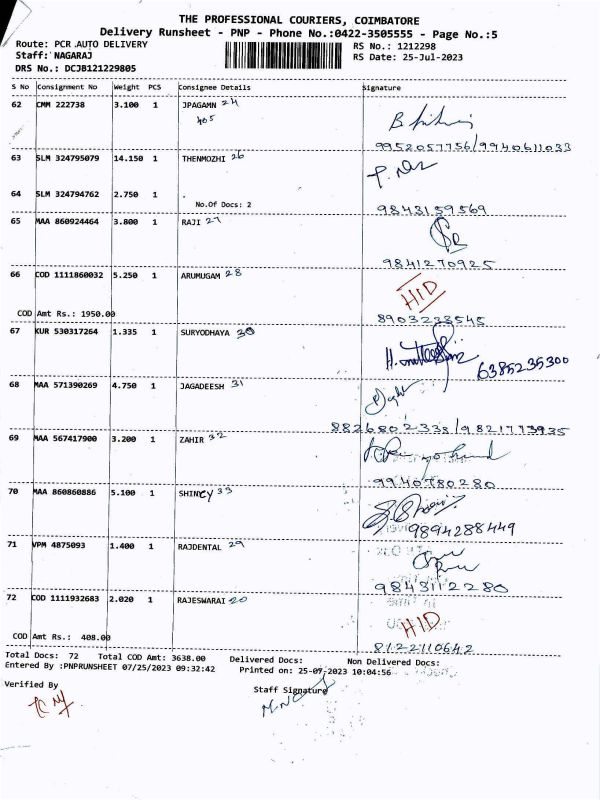 THE PROFESSIONAL COURIERS, COIMBATORE
Delivery Runsheet - PNP - Phone No.:0422-3505555 - Page No.:5
Route: PCR AUTO DELIVERY
RS No.: 1212298
Staff: NAGARAJ
RS Date: 25-Jul-2023
DRS No.: DCJB121229805
S No Consignment No Weight PCS Consignee Details Signature
62 CMM 222738 3.100 1 JPAGAMN 24
405
9952057756/9940611033
63 SLM 324795079 14.150 1 THENMOZHI 26
64 SLM 324794762 2.750 1 .
No.Of Docs: 2
9843159569
65 MAA 860924464 3.800 1 RAJI 27
9841270925
66 COD 1111860032 5.250 1 ARUMUGAM 28
HID
COD Amt Rs.: 1950.00
8903233545
67 KUR 530317264 1.335 1 SURYODHAYA 30
6385235300
68 MAA 571390269 4.750 1 JAGADEESH 31
8826802338/9821773935
69 MAA 567417900 3.200 1 ZAHIR 32
9940780280
70 MAA 860860886 5.100 1 SHINCY 33
9894288449
71 VPM 4875093 1.400 1 RAJDENTAL 29
9843112280
72 COD 1111932683 2.020 1 RAJESWARAI 20
HID
COD Amt Rs.: 408.00
8122110642
Total Docs: 72 Total COD Amt: 3638.00 Delivered Docs: Non Delivered Docs:
Entered By :PNPRUNSHEET 07/25/2023 09:32:42 Printed on: 25-07-2023 10:04:56
Verified By
Staff Signature